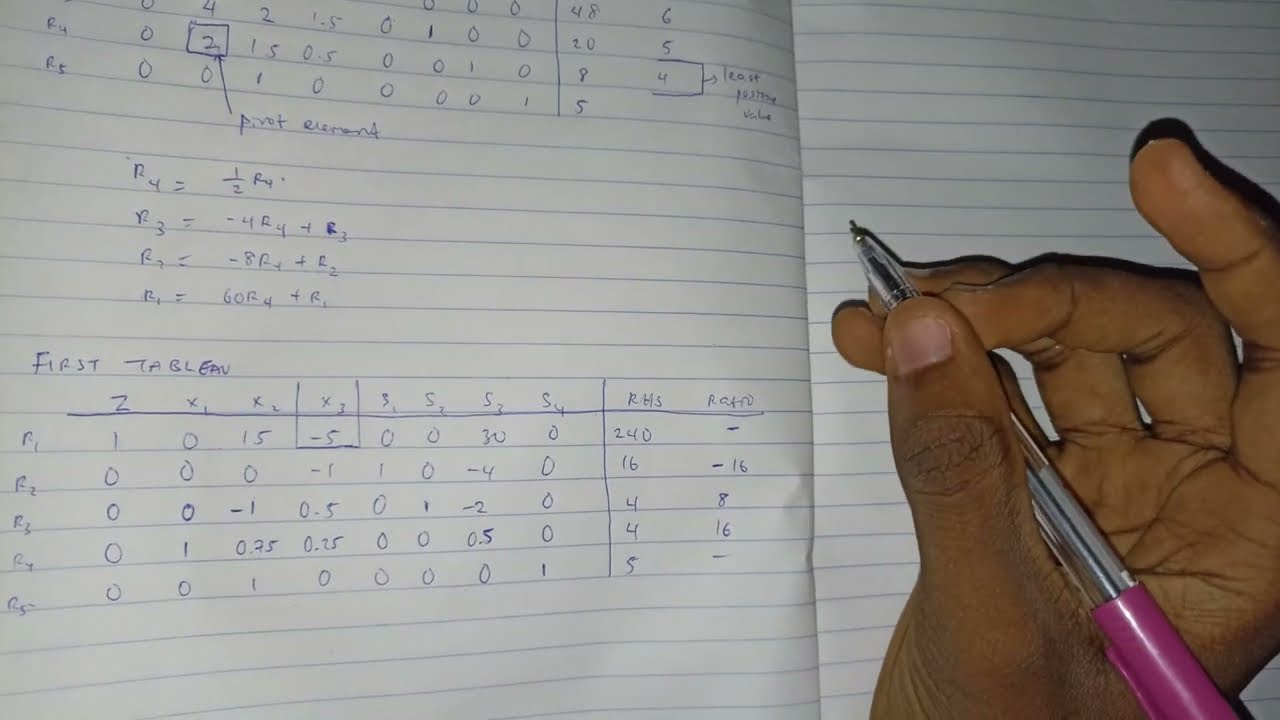 0 4 2 1.5 0 0 0 0 48 6
R4 0 2 1 5 0.5 0 1 0 0 20 5
R5 0 0 1 0 0 0 1 0 8 4 least
0 0 0 1 5 positive
value
pivot element
R4 = 1/2 R4
R3 = -4R4 + R3
R2 = -8R4 + R2
R1 = 60R4 + R1
FIRST TABLEAU
Z X1 X2 X3 S1 S2 S3 S4 RHS Ratio
R1 1 0 15 -5 0 0 30 0 240 -
R2 0 0 0 -1 1 0 -4 0 16 -16
R3 0 0 -1 0.5 0 1 -2 0 4 8
R4 0 1 0.75 0.25 0 0 0.5 0 4 16
R5 0 0 1 0 0 0 0 1 5 -